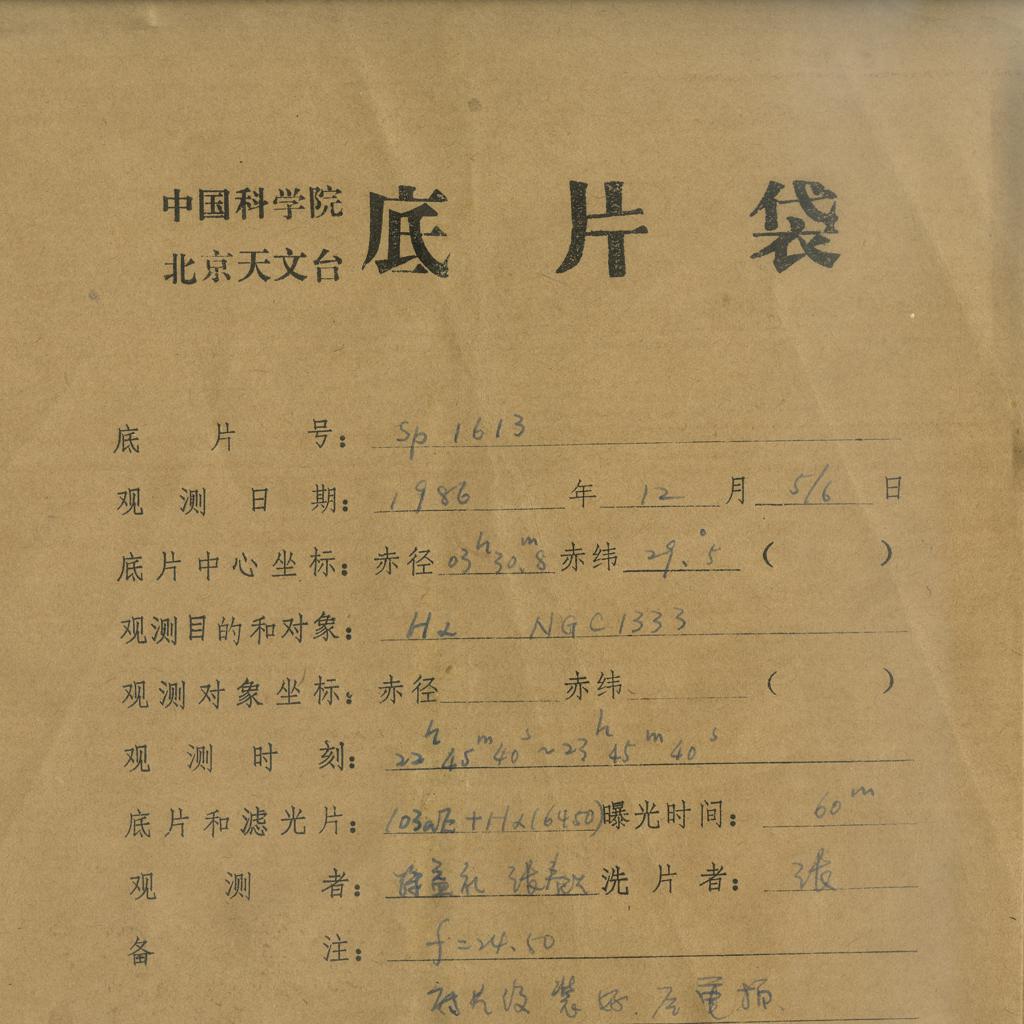 中国科学院
北京天文台
底片袋
底片号： Sp 1613
观测日期： 1986 年 12 月 5/6 日
底片中心坐标： 赤径 03ʰ30ᵐ.8 赤纬 29°.5 （ ）
观测目的和对象： Hα NGC1333
观测对象坐标： 赤径 赤纬 （ ）
观测时刻： 22ʰ45ᵐ40ˢ~23ʰ45ᵐ40ˢ
底片和滤光片： 103aE+Hα(6450) 曝光时间： 60ᵐ
观测者： 张 洗片者： 张
备注： f=24.50
装好